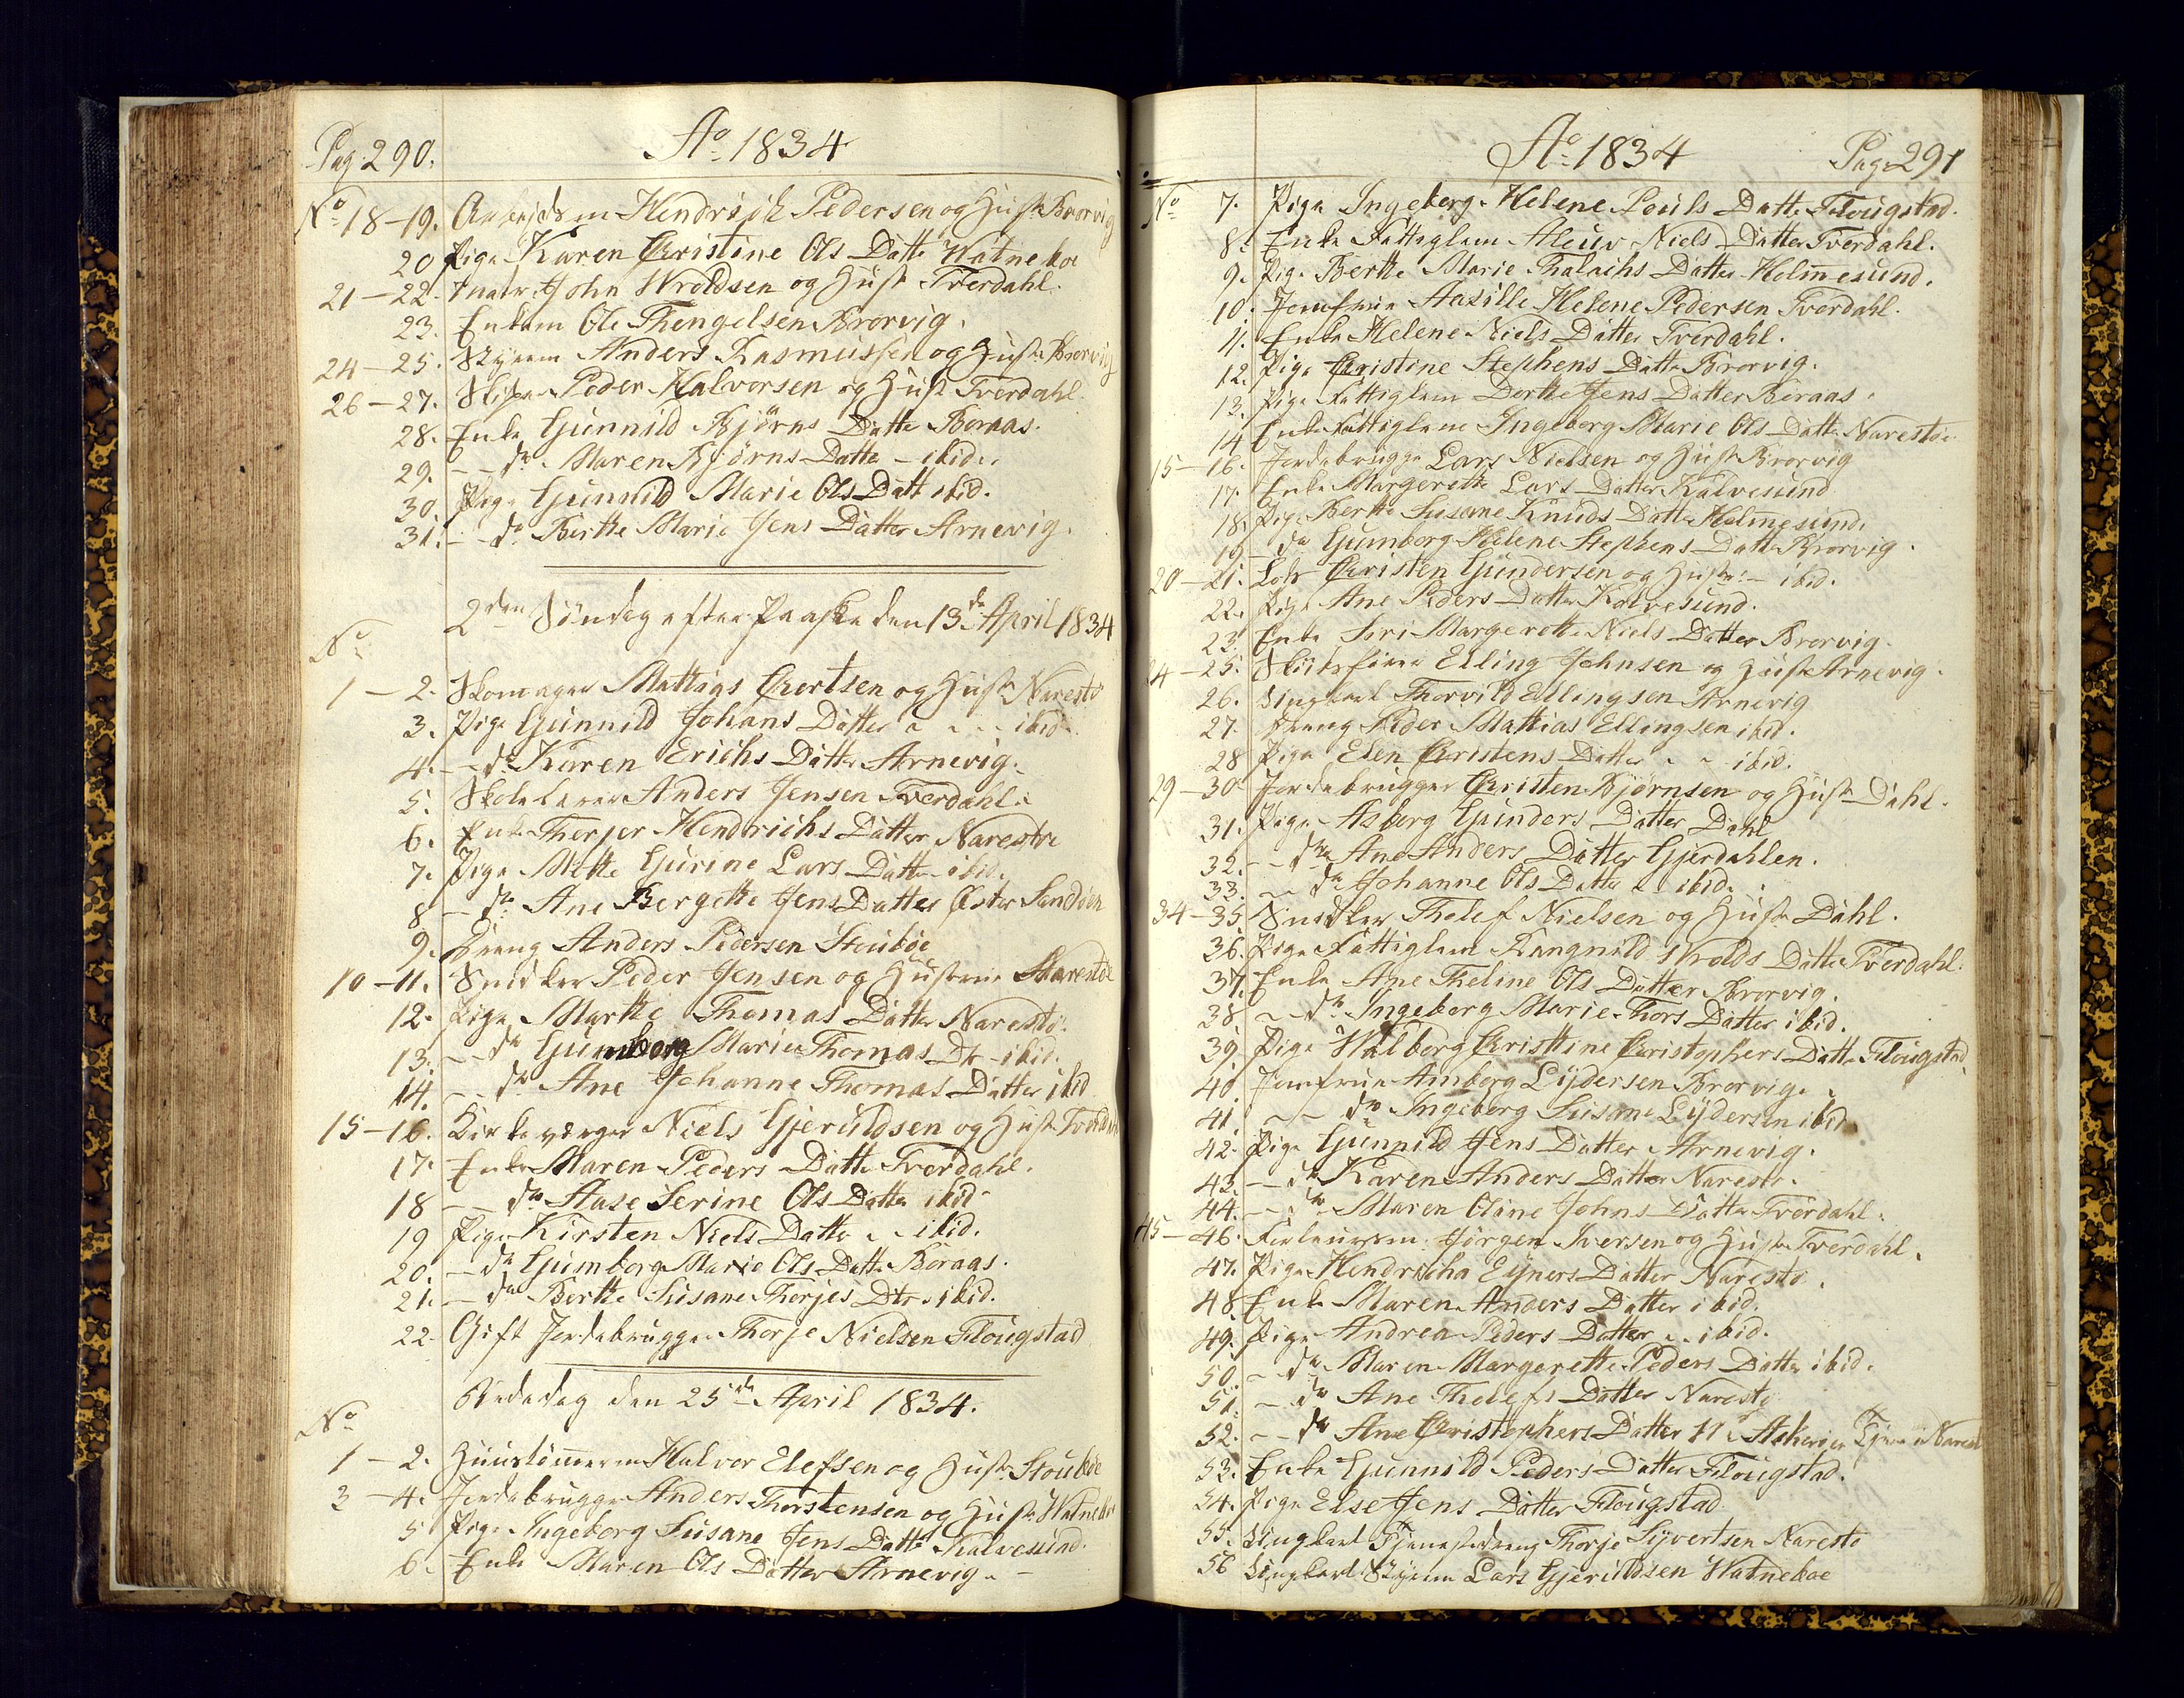 Pag: 290.
Ao 1834
No 18-19. Arbejdsm Hendrich Pedersen og Hust. Brorvig
20 Pige Karen Christine Ols Datte Watneboe
21-22. John Wroldsen og Hust Tverdahl.
23. Enkem Ole Thengelsen Brorvig.
24-25. Styrm Anders Rasmussen og Hust. Brorvig
26-27. Skipr Peder Halvorsen og Hust Tverdahl.
28. Enke Gunnild Bjørns Datte Boraas.
29. -- do Maren Bjørns Datte - ibid.
30. Pige Gunnild Marie Ols Datt ibid.
31. -- do Berthe Marie Jens Datter Arnevig.
2den Søndag efter Paaske den 13de April 1834
No
1-2. Skomager Mathias Evertsen og Hustr Narestø
3. Pige Gunnild Johans Datter - - ibid.
4. - do Karen Erichs Datter Arnevig.
5. Skolelærer Anders Jensen Tverdahl.
6. Enke Therjer Hendrichs Datter Narestøe
7. Pige Mette Gurine Lars Datter ibid.
8 - do Ane Bergithe Jens Datter Øster Sandøen
9. Dreng Anders Pedersen Stoubøe
10-11. Snidker Peder Jensen og Hustrue Narestøe
12. Pige Marthe Thomas Datter Narestø.
13. -- do Gumborg Marie Thomas Dtr - ibid.
14. -- do Ane Johanne Thomas Datter ibid
15-16. Kirkeværger Niels Gjeruldsen og Hust. Tverdahl
17. Enke Maren Peders Datte Tverdahl.
18 -- do Aase Serine Ols Datte ibid.
19 Pige Kirsten Niels Datte - - ibid.
20. - do Gumborg Marie Ols Datte Boraas.
21. - do Berthe Susane Therjes Dtr - ibid.
22. Gift Jordebrugger Thorje Nielsen Flougstad
Bededag den 25de April 1834.
No
1-2. Huustømmerm Halvor Elefsen og Hust. Stoubøe
3-4. Jordebrugger Anders Thorstensen og Hust. Watneboe
5 Pige Ingeborg Susane Jens Datte Kalvesund.
6. Enke Maren Ols Datter Arnevig. -
Ao 1834
Pag. 291
No 7. Pige Ingeborg Helene Pouls Datte Flougstad.
8. Enke Fattiglem Niels Datter Tverdahl.
9. Pige Berthe Marie Datter Helmesund.
10. Jomfrue Aasille Helene Pedersen Tverdahl.
11. Enke Helene Niels Datter Tverdahl.
12. Pige Christine Stephens Datte Brorvig.
13. Pige Fattiglem Dorthe Jens Datter Boraas.
14 Enke Fattiglem Ingeborg Marie Ols Datte Narestøe
15-16. Jordebrugge Lars Nielsen og Hust. Brorvig
17. Enke Margerethe Lars Datter Kalvesund
18. Pige Berthe Susane Knuds Datte Helmesund.
19 - do Gumborg Helene Stephens Datte Brorvig.
20-21. Lods Christen Gundersen og Hustr: - ibid.
22. Pige Ane Peders Datter Kalvesund.
23. Enke Siri Margerethe Niels Datter Brorvig.
24-25. Elling Johnsen og Hust. Arnevig.
26. Ungkarl Thorvild Ellingsen Arnevig
27. Dreng Peder Mathias Ellingsen ibid.
28 Pige Elen Christens Datter - - ibid.
29-30 Jordebrugger Christen Bjørnsen og Hust. Dahl.
31. Pige Asberg Gunders Datter Dahl
32. -- do Ane Anders Datter Gjerdahlen.
33. -- do Johanne Ols Datter - - ibid.
34-35. Snidker Thelef Nielsen og Hust. Dahl.
36. Pige Fattiglem Rangnild Wrolds Datte Tverdahl.
37. Enke Ane Theline Ols Datter Brorvig.
38 -- do Ingeborg Marie Thors Datter ibid.
39. Pige Walborg Christine Christophers Datte Flougstad.
40. Jomfrue Amborg Lydersen Brorvig.
41. -- do Ingeborg Susane Lydersen ibid
42. Pige Gunnild Jens Datter Arnevig.
43. -- do Karen Anders Datter Narestø.
44. -- do Maren Oline Johns Datte Tverdahl.
45-46. Jørgen Iversen og Hust. Tverdahl.
47. Pige Hendricha Eyners Datter Narestø.
48. Enke Maren Anders Datter ibid.
49. Pige Andrea Peders Datter - - ibid.
50. - do Maren Margerethe Peders Datter ibid.
51. - do Ane Thelefs Datter Narestø
52. -- do Ane Christophers Datter Narest
53. Enke Gunnild Peders Datter Flougstad.
54. Pige Else Jens Datter Flougstad.
55. Ungkarl Tjenestedreng Thorje Syvertsen Narestø
56 Ungkarl Styrm Lars Gjeruldsen Watneboe